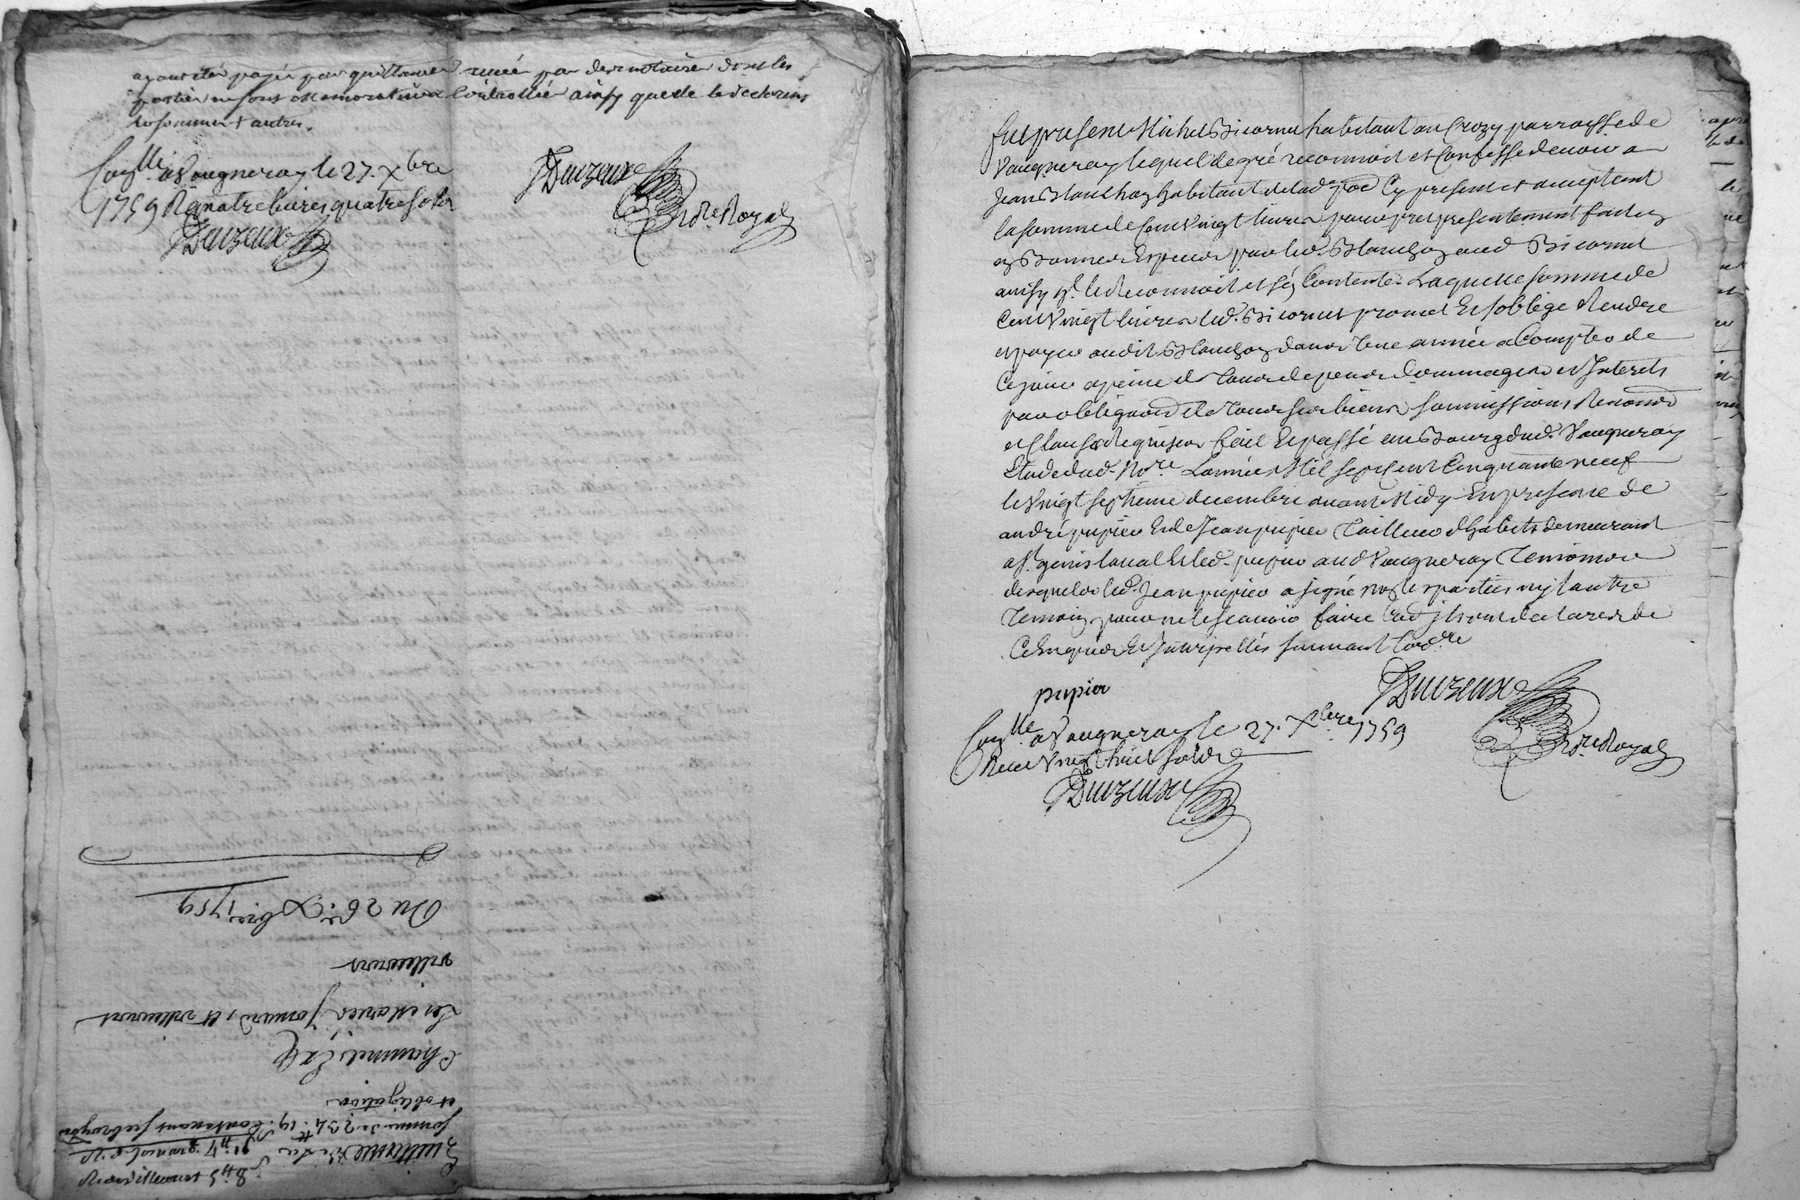 ayant eté payée par quittance recüe par des notaires dont les
parties ne sont memoratives Controllée ainsy que de le declarent
personnes & autres.
Con^lle a Vaugneray le 27. X^bre
1759 R quatre livres quatre sols
Duizeux
Duizeux
No^re Royal
Fut present Michel Bicornet habitant au Crozy parroisse de
Vaugneray lequel de gré reconnoit et Confesse devoir a
Jean Blanchoz habitant cy present et acceptant
la somme de Cent Vingt livres pour pret presentement fait
en Bonnes Especes par led. Blanchoz aud Bicornet
ainsy qu'il le Reconnoit et sen Contente. Laquelle somme de
Cent Vingt livres led. Bicornet promet Et soblige Rendre
et payer audit Blanchoz dans une année a Compter de
Ce jour a peine de tous depens dommages et Interets
par obligaon de tous ses biens soumissions Renonons
et Clauses Requises fait Et passé au Bourg dud. Vaugneray
Etude dud. No^re Lannée Mil sept cent Cinquante neuf
le Vingt septieme decembre avant Midy En presence de
andré pupier Et de Jean pupier Tailleur dhabits demeurant
a St. genis laval Et led. pupier aud Vaugneray Temoins
desquels led. Jean pupier a signé non les parties ny lautre
Temoin pour ne le scavoir faire ont declaré de
Ce Enquis Et Interpellés suivant lord^re
pupier
Duizeux
No^re Royal
Con^lle a Vaugneray le 27. X^bre 1759
Recu Vingt huit sols
Duizeux
Quittance
somme de 234 ^tt 19.
et obligation
Les mariés Jomard, et villecourt
villecourt
Du 26.^e X^bre 1759